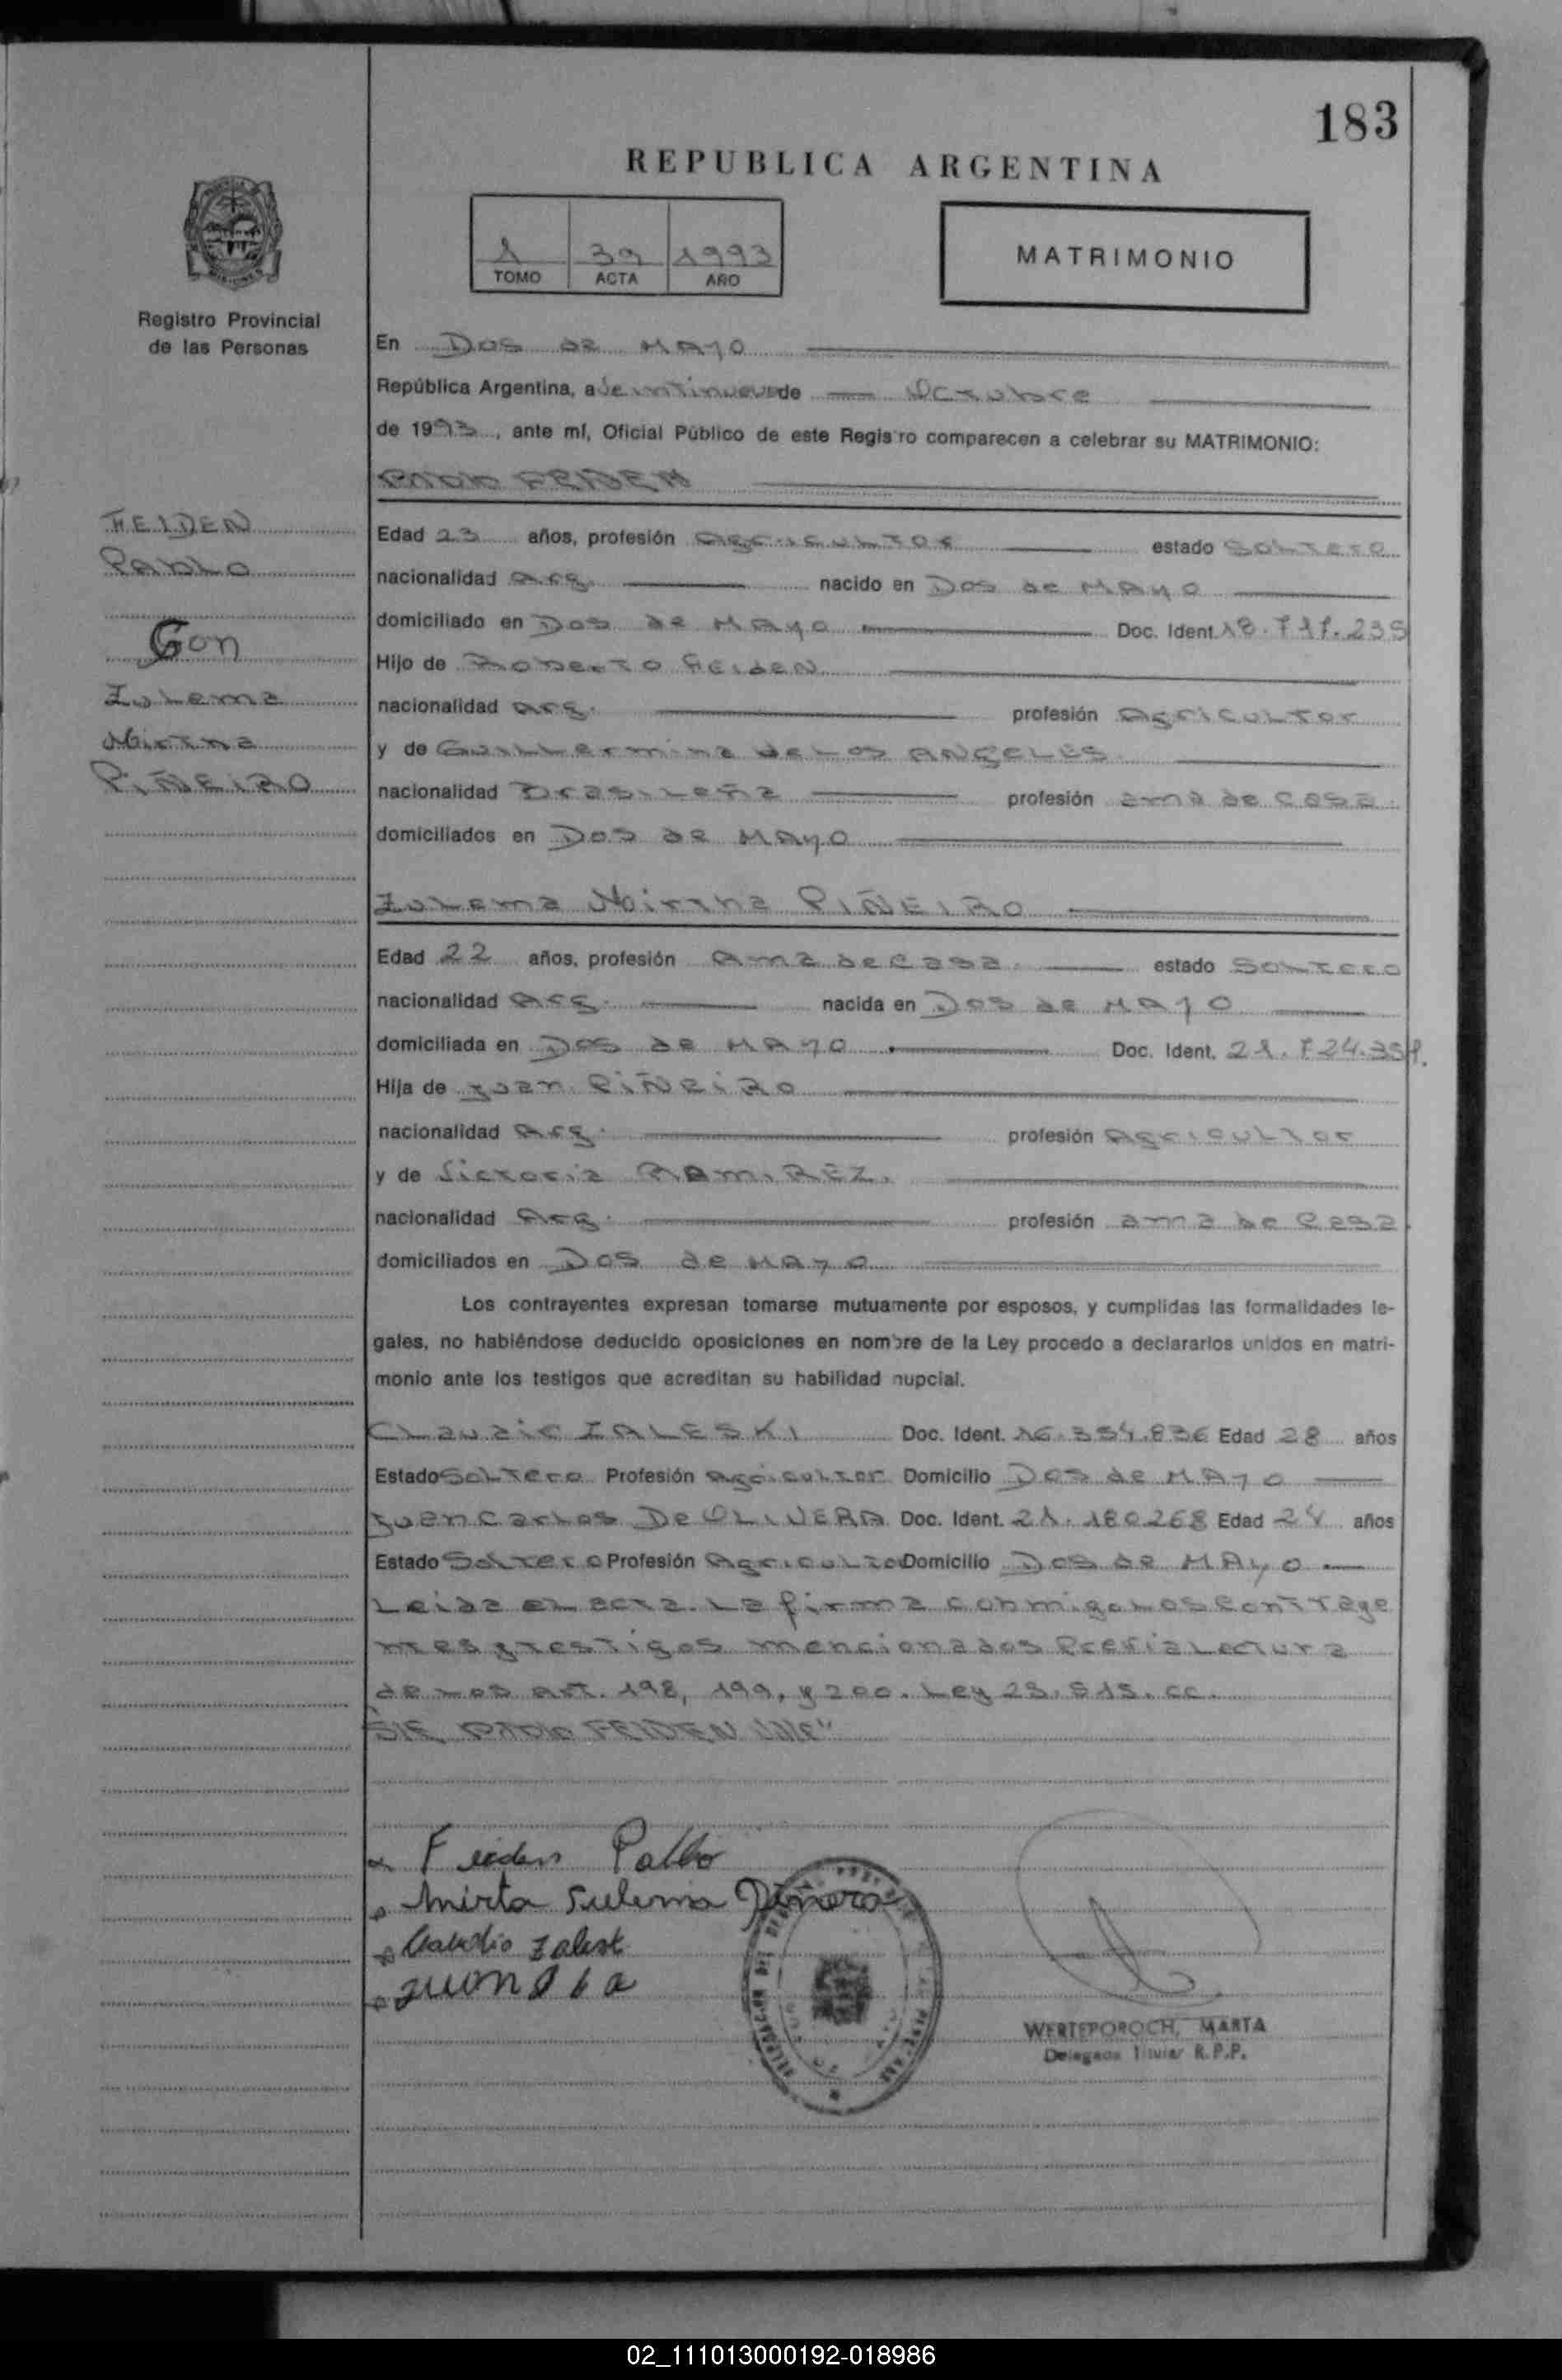 183
REPUBLICA ARGENTINA
1 39 1993
TOMO ACTA AÑO
MATRIMONIO
Registro Provincial
de las Personas
En Dos de Mayo
República Argentina, a veintinueve de Octubre
de 1993, ante mí, Oficial Público de este Registro comparecen a celebrar su MATRIMONIO:
Pablo FEIDEN
FEIDEN
Pablo
Con
Zulema
Mirtha
PIÑEIRO
Edad 23 años, profesión Agricultor estado Soltero
nacionalidad Arg. nacido en Dos de Mayo
domiciliado en Dos de Mayo Doc. Ident.
Hijo de Roberto FEIDEN
nacionalidad Arg. profesión Agricultor
y de Guillermina de Los ANGELES
nacionalidad Brasileña profesión ama de casa.
domiciliados en Dos de Mayo
Zulema Mirtha PIÑEIRO
Edad 22 años, profesión Ama de Casa. estado Soltero
nacionalidad Arg. nacida en Dos de Mayo
domiciliada en Dos de Mayo Doc. Ident.
Hija de Juan PIÑEIRO
nacionalidad Arg. profesión Agricultor
y de Victoria RAMIREZ.
nacionalidad Arg. profesión ama de Casa
domiciliados en Dos de Mayo
Los contrayentes expresan tomarse mutuamente por esposos, y cumplidas las formalidades le-
gales, no habiéndose deducido oposiciones en nombre de la Ley procedo a declararlos unidos en matri-
monio ante los testigos que acreditan su habilidad nupcial.
Claudio ZALESKI Doc. Ident. 16.354.836 Edad 28 años
Estado Soltero Profesión Agricultor Domicilio Dos de Mayo
Juan Carlos De OLIVERA Doc. Ident. 21.180268 Edad 24 años
Estado Soltero Profesión Agricultor Domicilio Dos de Mayo
Leida el acta. La firma conmigo los contraye
ntes y testigos mencionados Previa Lectura
de los art. 198, 199, y 200. Ley 23.515. cc.
S/E Pablo FEIDEN "VALE"
Feiden Pablo
Mirta Sulema
Claudio Zalesk
WERTEPOROCH, MARTA
Delegada Titular R.P.P.
02_111013000192-018986